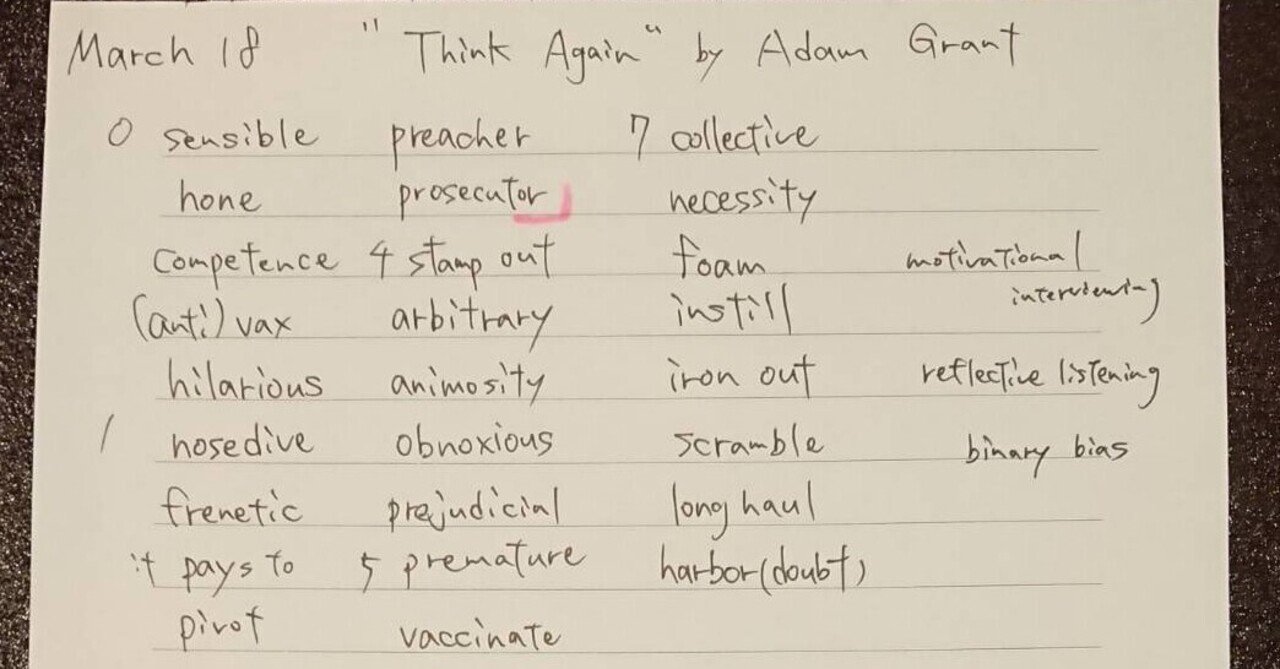 March 18 "Think Again" by Adam Grant
0 sensible preacher 7 collective
hone prosecutor necessity
competence 4 stamp out foam motivational
interviewing
(anti) vax arbitrary instill
hilarious animosity iron out reflective listening
1 nosedive obnoxious scramble binary bias
frenetic prejudicial long haul
it pays to 5 premature harbor (doubt)
pivot vaccinate